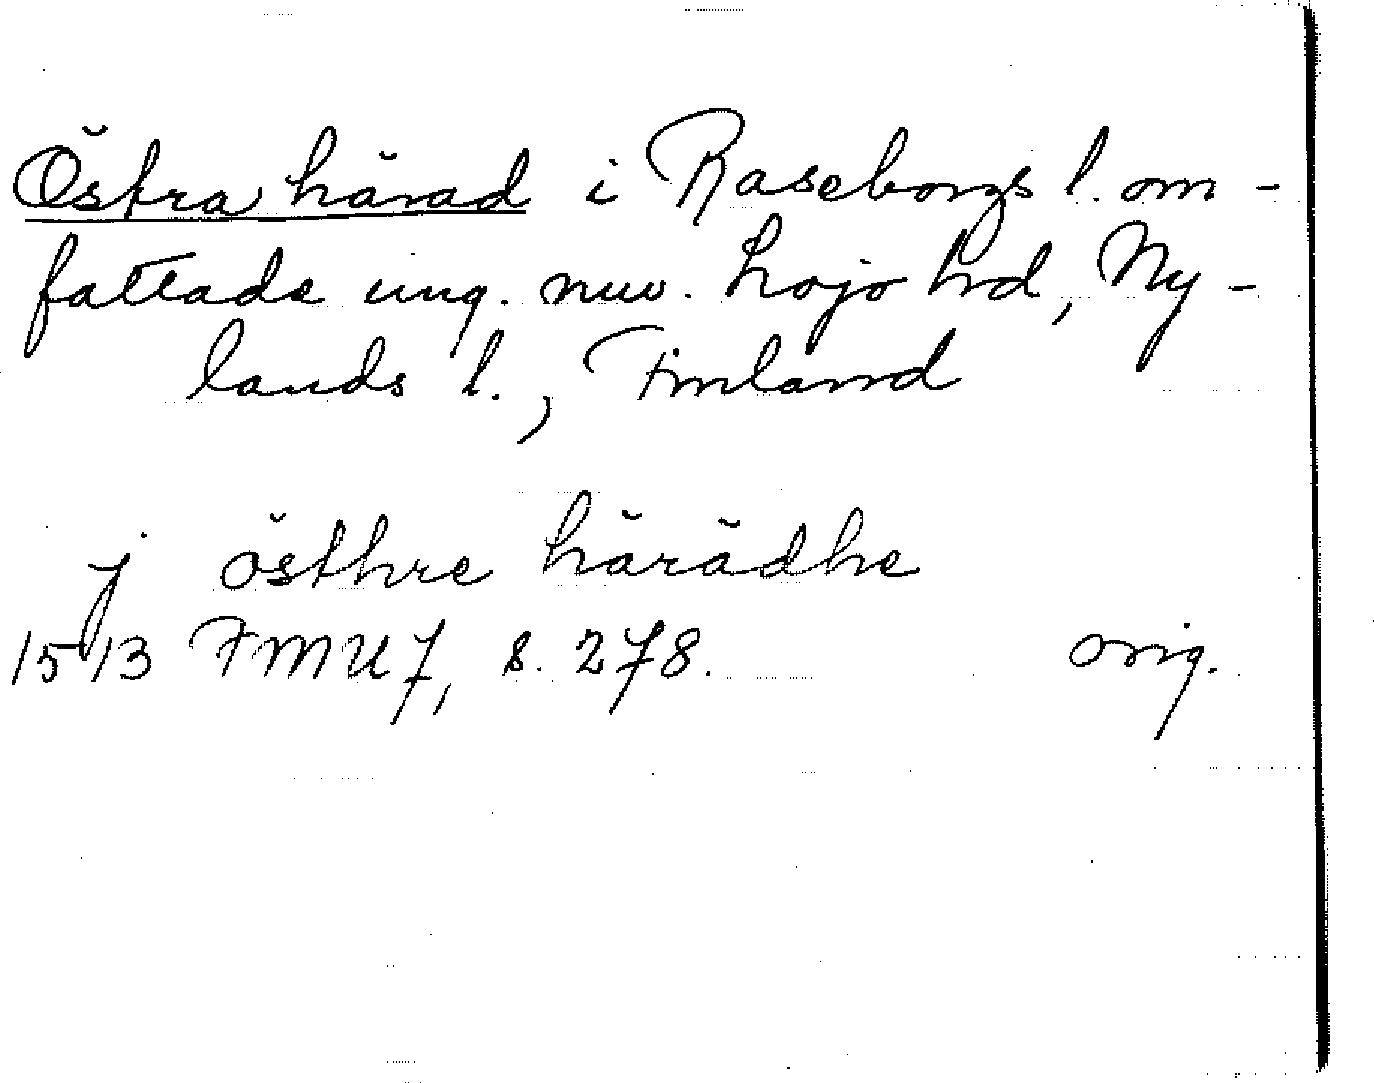 Östra härad i Raseborgs l. om-
fattade ung. nuv. Lojo hd, Ny-
lands l., Finland
j östhre härädhe
1513 FMU 7, s. 278. orig.